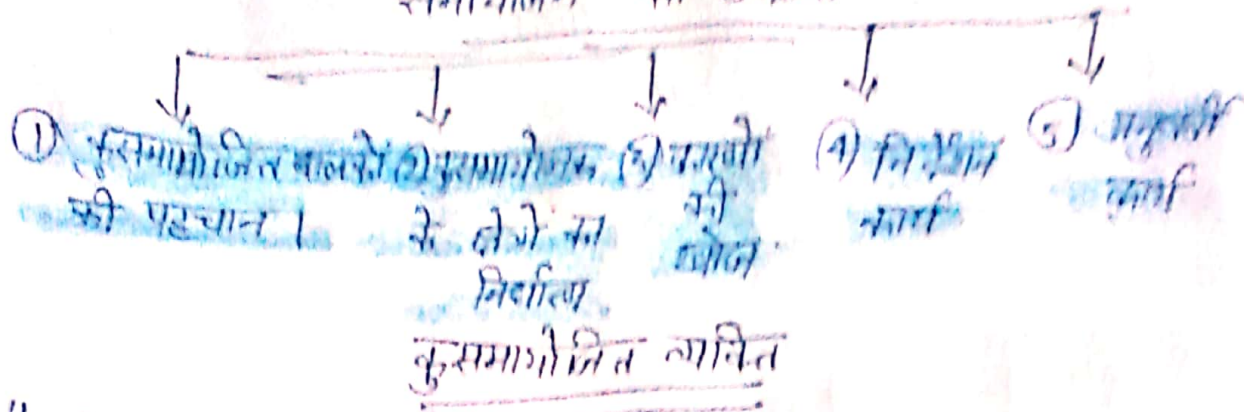 ① कुसमायोजित बालकों की पहचान।
② कुसमायोजन के क्षेत्रों का निर्धारण
③ कारणों की खोज
④ निर्देशन कार्य
⑤ अनुवर्ती कार्य
कुसमायोजित व्यक्ति